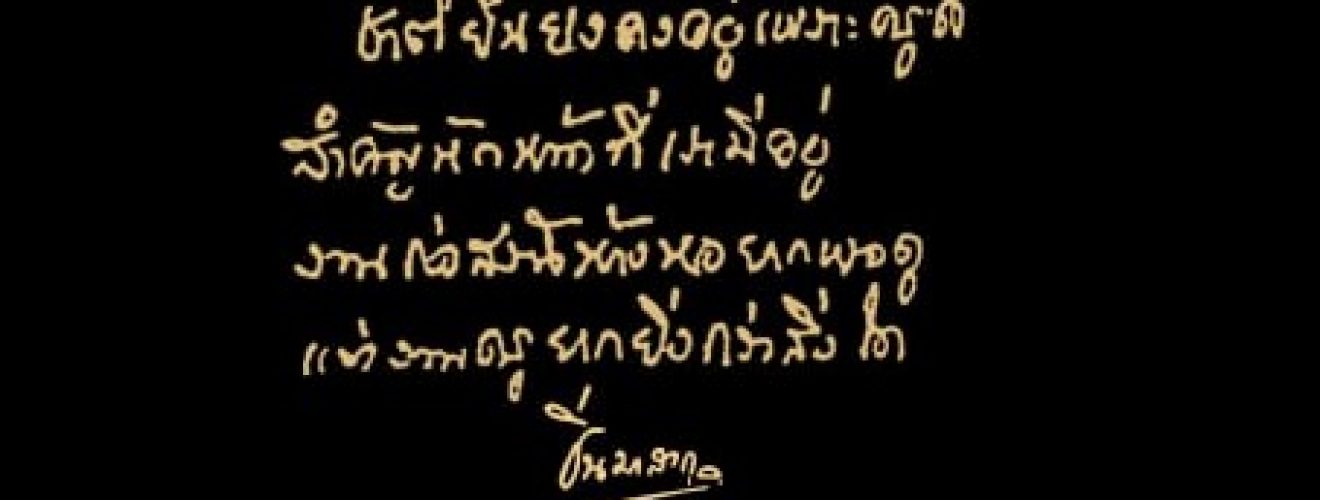 ชาติยืนยงคงอยู่เพราะครูดี
สำคัญนักหน้าที่เรามีอยู่
งานก่อสร้างห้างหอยากพอดู
แต่งานครูยากยิ่งกว่าสิ่งใด
ปิ่น มาลากุล